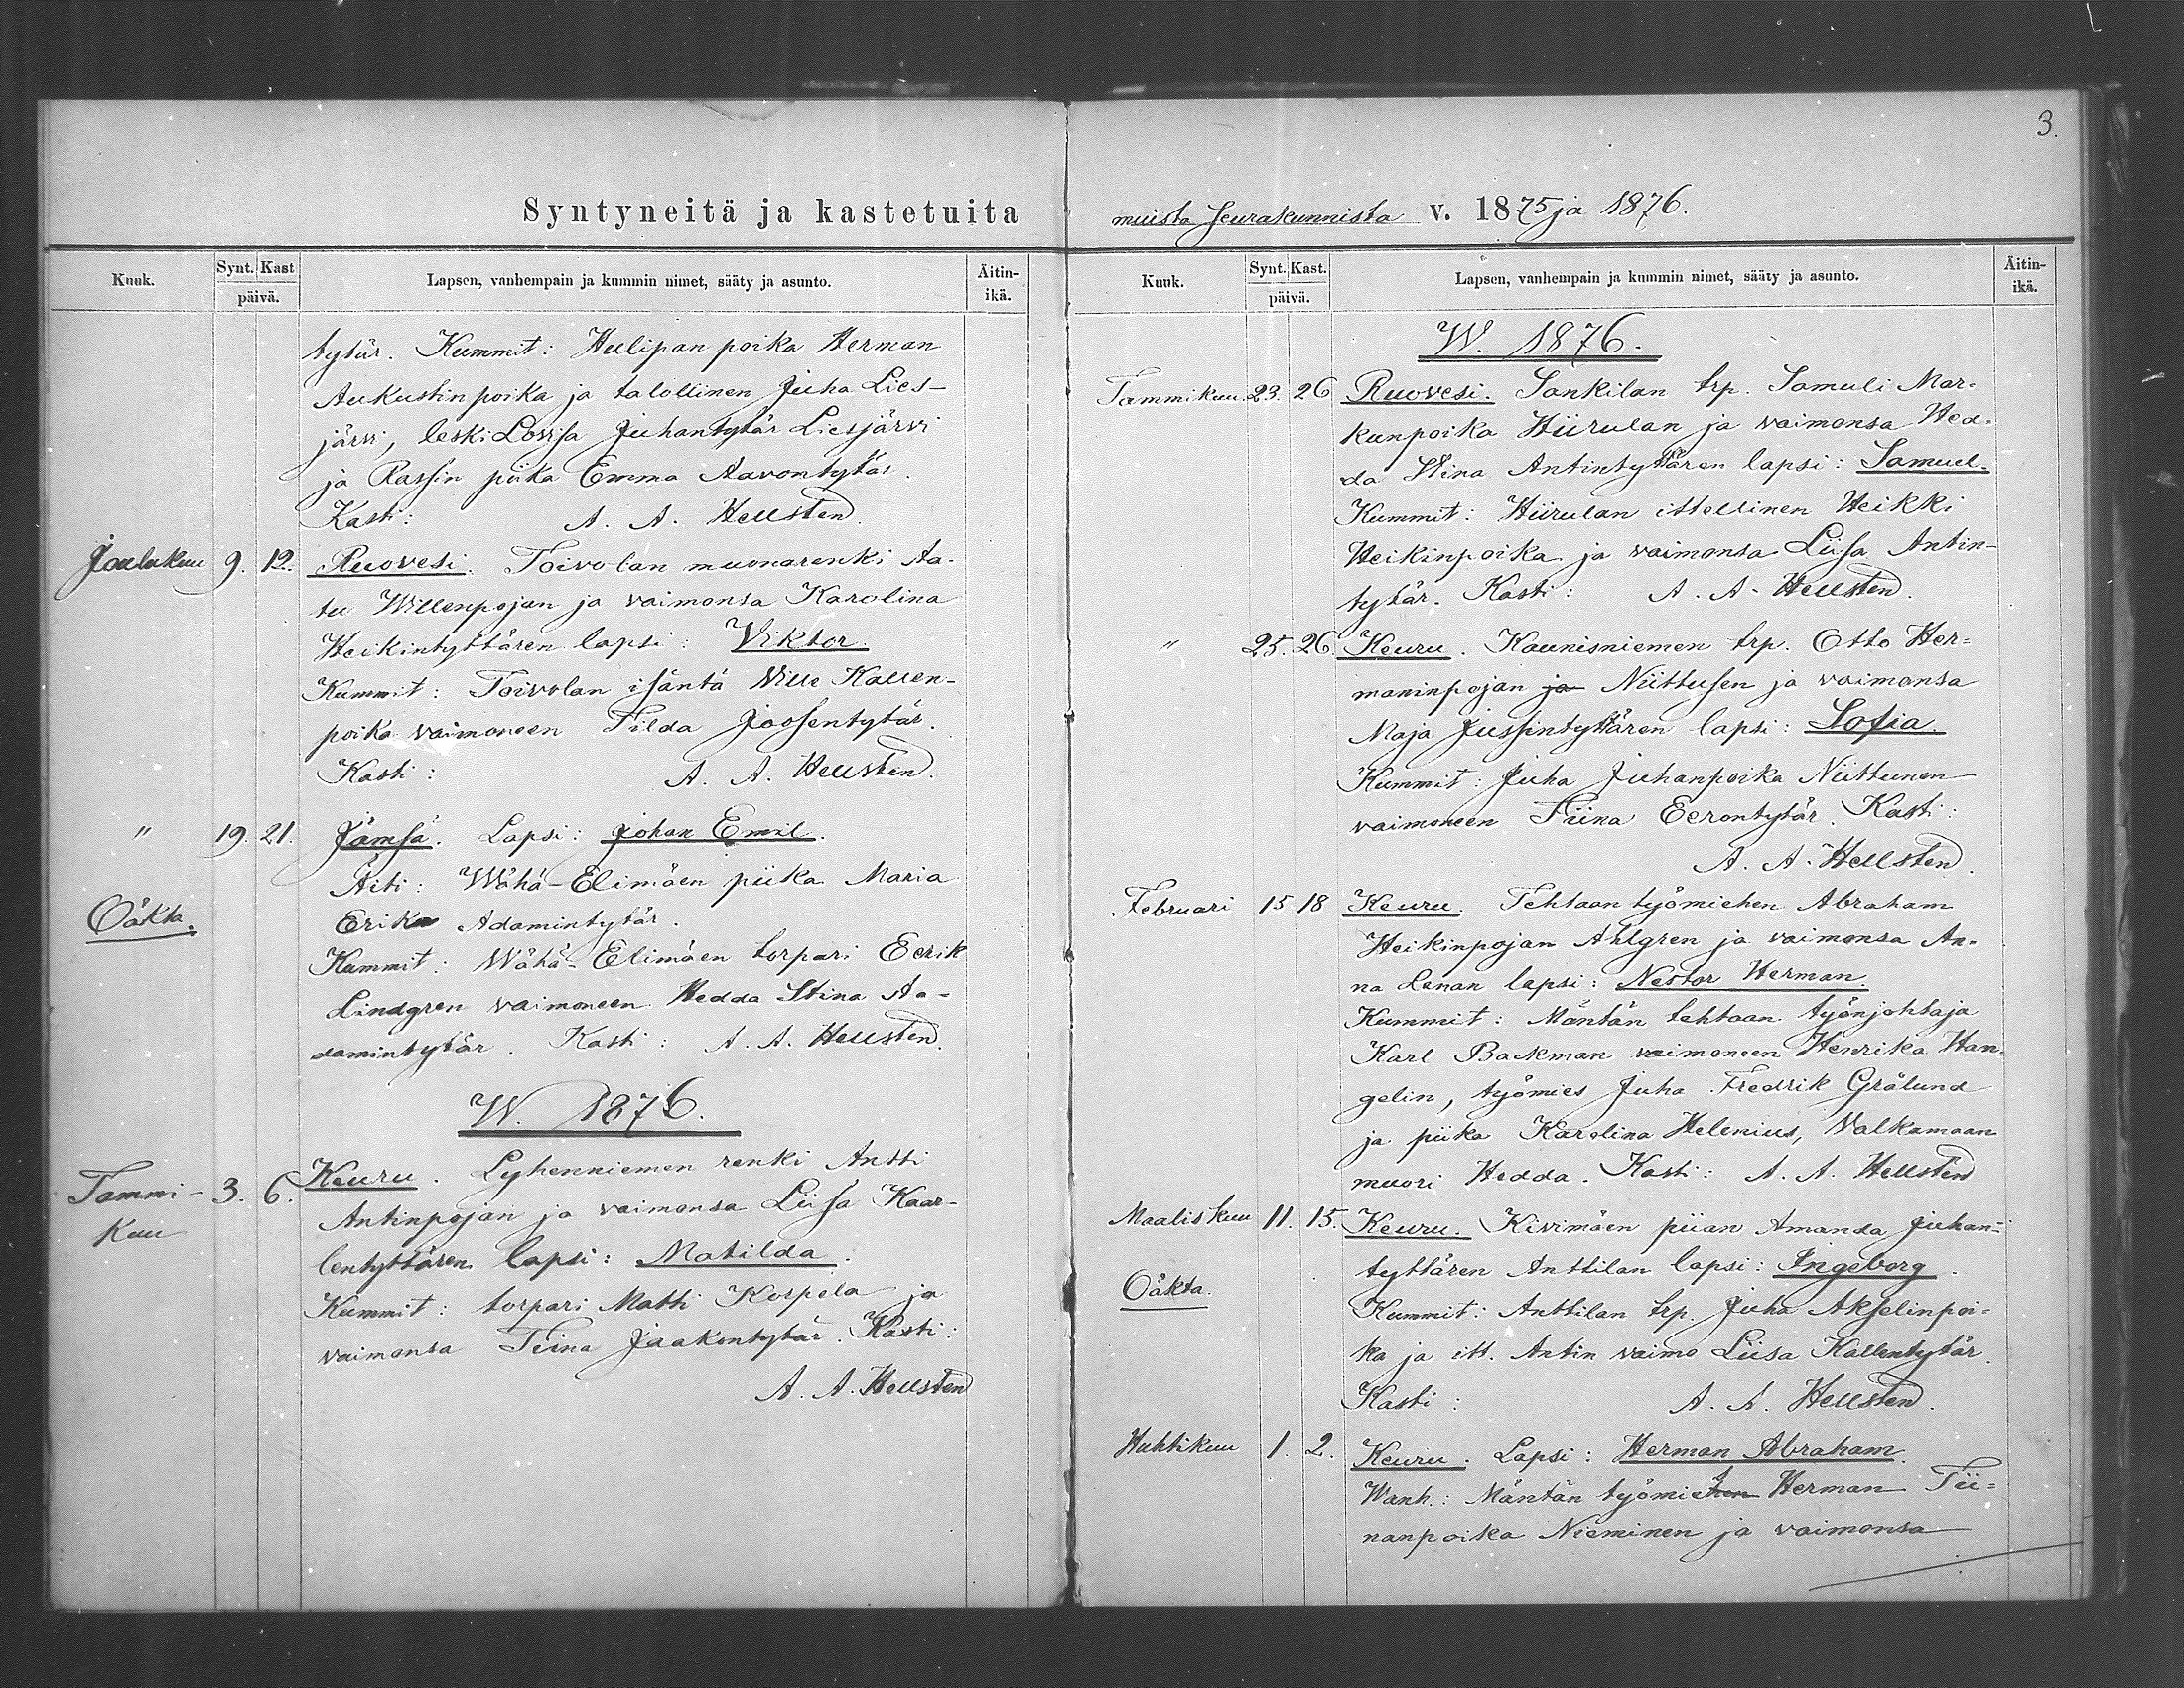 3.
Syntyneitä ja kastetuita
Kuuk. Synt. Kast Lapsen, vanhempain ja kummin nimet, sääty ja asunto. Äitin-
päivä. ikä.
tytär. Kummit: Hulipan poika Herman
Aukustinpoika ja talollinen Juha Lies-
järvi, leski Lovisa Juhantytär Liesjärvi
ja Rassin piika Emma Aavontytär.
Kasti: A. A. Hellsten.
Joulukuu 9. 12. Ruovesi. Toivolan muonarenki Aa-
tu Willenpojan ja vaimonsa Karolina
Heikintyttären lapsi: Viktor.
Kummit: Toivolan isäntä Wille Kallen-
poika vaimoneen Tilda Joosentytär.
Kasti: A. A. Hellsten.
" 19. 21. Jämsä. Lapsi: Johan Emil.
Äiti: Wähä-Elimäen piika Maria
Oäkta. Erika Adamintytär.
Kummit: Wähä-Elimäen torpari Eerik
Lindgren vaimoneen Hedda Stina Aa-
damintytär. Kasti: A. A. Hellsten.
W. 1876.
Tammi- 3. 6. Keuru. Lyhenniemen renki Antti
kuu Antinpojan ja vaimonsa Liisa Kaar-
lentyttären lapsi: Matilda.
Kummit: torpari Matti Korpela ja
vaimonsa Tiina Jaakontytär. Kasti:
A. A. Hellsten
muista seurakunnista v. 1875 ja 1876.
Kuuk. Synt. Kast. Lapsen, vanhempain ja kummin nimet, sääty ja asunto. Äitin-
päivä. ikä.
W. 1876.
Tammikuu. 23. 26 Ruovesi. Sankilan trp. Samuli Mar-
kunpoika Hiirulan ja vaimonsa Hed-
da Stina Antintyttären lapsi: Samuel.
Kummit: Hiirulan ittellinen Heikki
Heikinpoika ja vaimonsa Liisa Antin-
tytär. Kasti: A. A. Hellsten.
" 25. 26. Keuru. Kaunisniemen trp. Otto Her-
maninpojan ja Niittusen ja vaimonsa
Maja Jussintyttären lapsi: Sofia.
Kummit: Juha Juhanpoika Niittunen
vaimoneen Tiina Eerontytär. Kasti:
A. A. Hellsten.
Februari 15 18 Keuru. Tehtaan työmiehen Abraham
Heikinpojan Ahlgren ja vaimonsa An-
na Lenan lapsi: Nestor Herman.
Kummit: Mäntän tehtaan työnjohtaja
Karl Backman vaimoneen Henrika Han-
gelin, työmies Juha Fredrik Grålund
ja piika Karolina Helenius, Valkamaan
muori Hedda. Kasti: A. A. Hellsten
Maaliskuu 11. 15. Keuru. Kivimäen piian Amanda Juhan-
tyttären Anttilan lapsi: Ingeborg.
Oäkta. Kummit: Anttilan trp. Juha Akselinpoi-
ka ja itt. Antin vaimo Liisa Kallentytär.
Kasti: A. A. Hellsten.
Huhtikuu 1. 2. Keuru. Lapsi: Herman Abraham.
Wanh.: Mäntän työmiehen Herman Tii-
nanpoika Nieminen ja vaimonsa